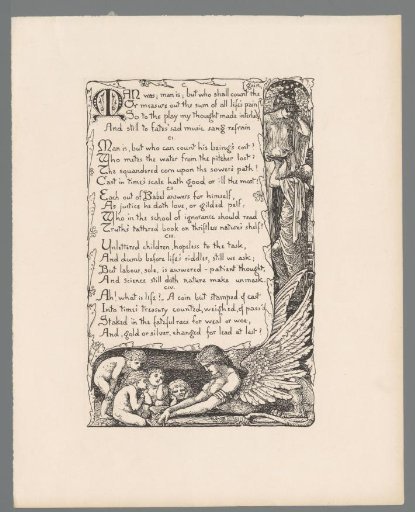 C.
MAN was; man is; but who shall count the
Or measure out the sum of all life's pain?
So to the play my thought made interlude
And still to Fate's sad music sang refrain
CI.
Man is, but who can count his being's cost?
Who metes the water from the pitcher lost?
The squandered corn upon the sower's path?
Cast in time's scale hath good or ill the most?
CII
Each out of Babel answers for himself,
As justice he doth love, or gilded pelf.
Who in the school of ignorance should read
Truth's tattered book on thriftless nature's shelf?
CIII.
Unlettered children, hopeless to the task,
And dumb before life's riddles, still we ask;
But labour, sole, is answered - patient thought,
And science still doth nature make unmask.
CIV.
Ah! what is life?, A coin but stamped & cast
Into time's treasury counted, weighed, & pass'd
Staked in the fateful race for weal or woe,
And, gold or silver, changed for lead at last?